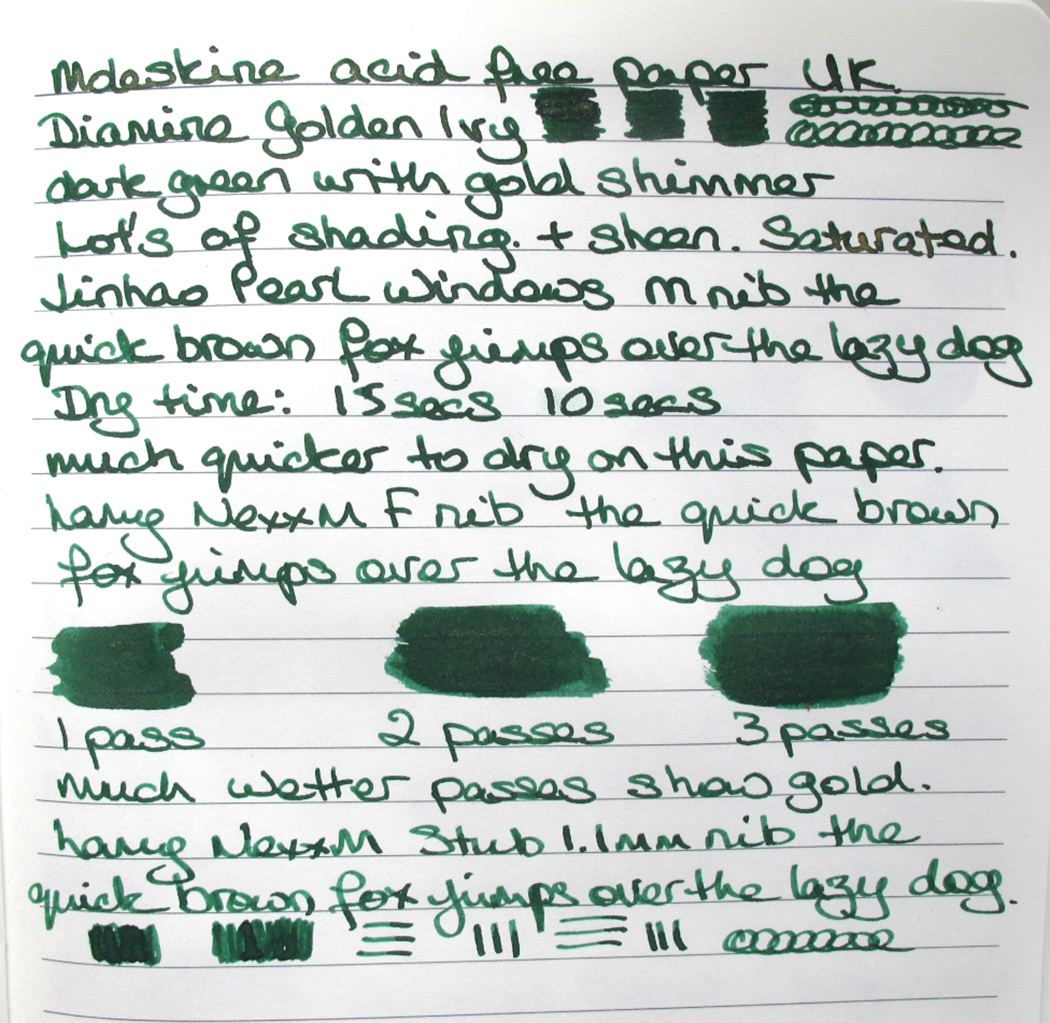 Moleskine acid free paper UK
Diamine Golden Ivy
dark green with gold shimmer
Lots of shading. + sheen. Saturated.
Jinhao Pearl Windows M nib the
quick brown fox jumps over the lazy dog
Dry time: 15 secs 10 secs
much quicker to dry on this paper.
lamy NexxM F nib the quick brown
fox jumps over the lazy dog
1 pass 2 passes 3 passes
much wetter passes show gold.
lamy NexxM Stub 1.1mm nib the
quick brown fox jumps over the lazy dog.